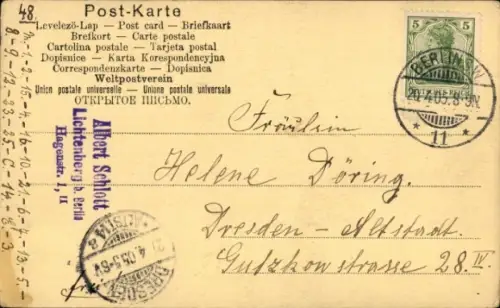 48.
Post-Karte
Levelező-Lap — Post card — Briefkaart
Brefkort — Carte postale
Cartolina postale — Tarjeta postal
Dopisnice — Karta Korespondencyjna
Correspondenzkarte — Dopisnica
Weltpostverein
Union postale universelle — Unione postale universale
ОТКРЫТОЕ ПИСЬМО.
5 5
BERLIN S.W.
20.4.05.8-9N.
* 11 *
Albert Schlott
Lichtenberg b. Berlin
Hagenstr. 1, II
Fräulein
Helene Döring.
Dresden - Altstadt.
Gutzkowstrasse 28. IV
DRESDEN
ALTST.14 a
4.05.5-6V.
8-9-12-23-25-C-14-8-3